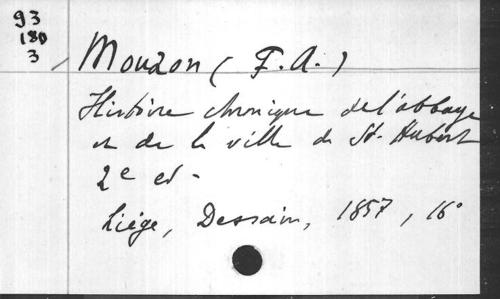 93
180
3
Mouzon (F. A.)
Histoire chronique de l'abbaye
et de la ville de St. Hubert
2e ed -
Liége, Dessain, 1857, 16°